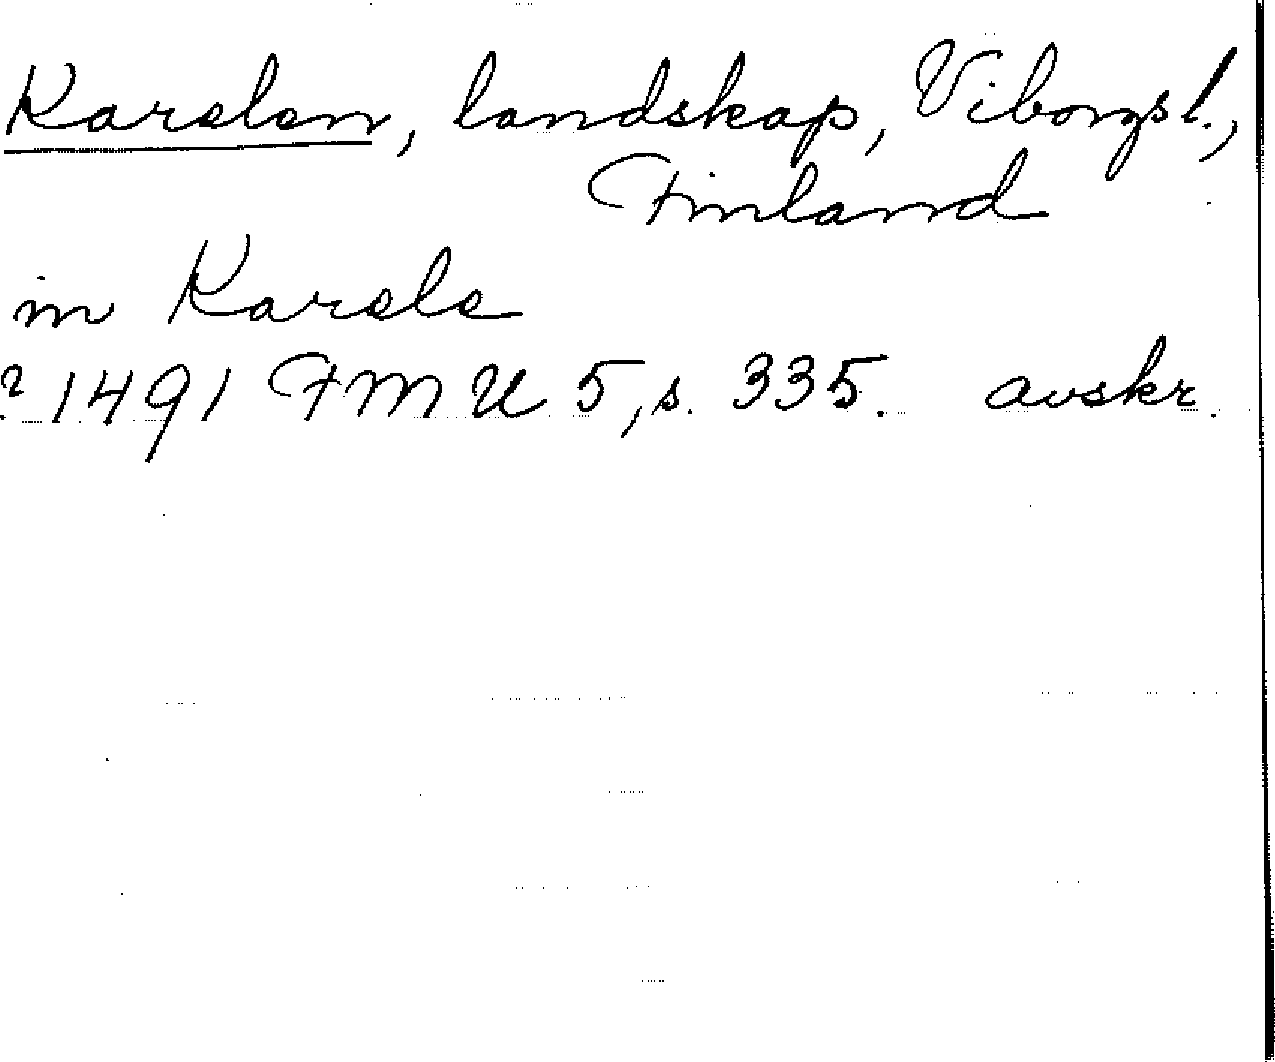 Karelen, landskap, Viborgs l.,
Finland
in Karele
? 1491 FMU 5, s. 335. avskr.